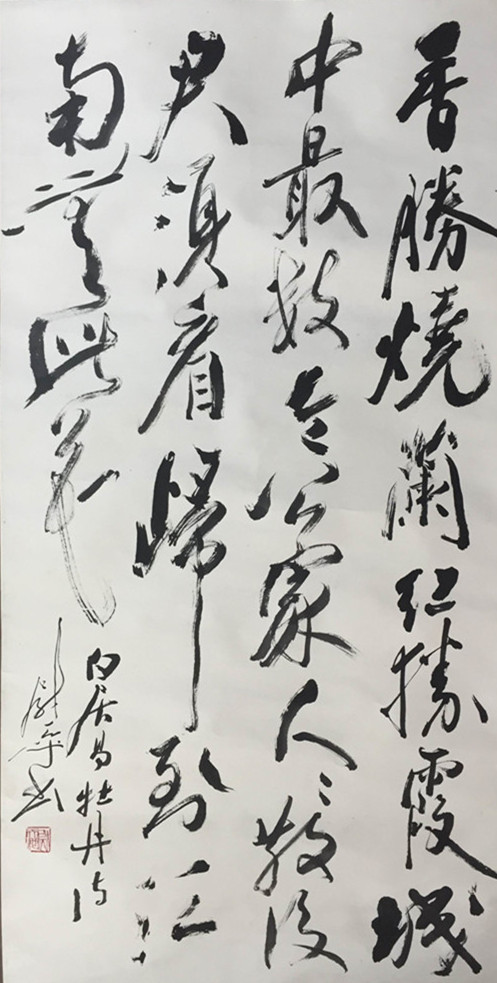 香勝燒蘭紅勝霞城
中最數令公家人〻散後
君須看歸到江
南無此花
白居易牡丹詩
书